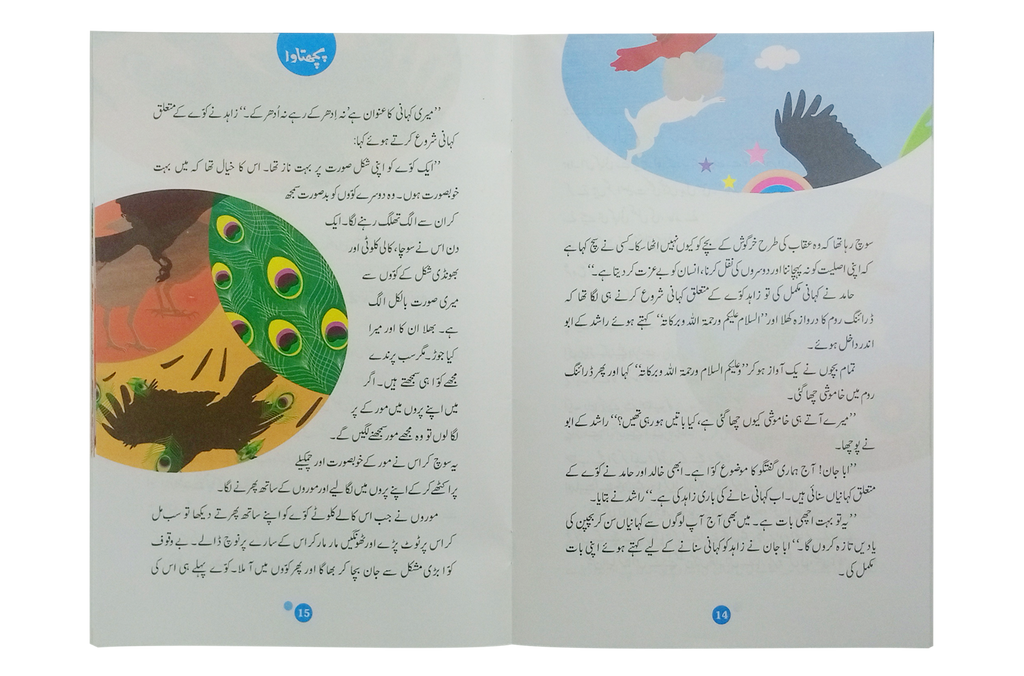 سوچ رہا تھا کہ وہ عقاب کی طرح خرگوش کے بچے کو کیوں نہیں اٹھا سکا۔ کسی نے سچ کہا ہے
کہ اپنی اصلیت کو نہ پہچاننا اور دوسروں کی نقل کرنا، انسان کو بے عزت کر دیتا ہے۔‘‘
حامد نے کہانی مکمل کی تو زاہد کوّے کے متعلق کہانی شروع کرنے ہی لگا تھا کہ
ڈرائنگ روم کا دروازہ کھلا اور ’’السلام علیکم ورحمۃ اللہ وبرکاتہ‘‘ کہتے ہوئے راشد کے ابو
اندر داخل ہوئے۔
تمام بچوں نے یک آواز ہو کر ’’وعلیکم السلام ورحمۃ اللہ وبرکاتہ‘‘ کہا اور پھر ڈرائنگ
روم میں خاموشی چھا گئی۔
’’میرے آتے ہی خاموشی کیوں چھا گئی ہے، کیا باتیں ہو رہی تھیں؟‘‘ راشد کے ابو
نے پوچھا۔
’’ابا جان! آج ہماری گفتگو کا موضوع کوّا ہے۔ ابھی خالد اور حامد نے کوّے کے
متعلق کہانیاں سنائی ہیں۔ اب کہانی سنانے کی باری زاہد کی ہے۔‘‘ راشد نے بتایا۔
’’یہ تو بہت اچھی بات ہے۔ میں بھی آج آپ لوگوں سے کہانیاں سن کر بچپن کی
یادیں تازہ کروں گا۔‘‘ ابا جان نے زاہد کو کہانی سنانے کے لیے کہتے ہوئے اپنی بات
مکمل کی۔
14
پچھتاوا
’’میری کہانی کا عنوان ہے ’نہ اِدھر کے رہے نہ اُدھر کے۔‘‘ زاہد نے کوّے کے متعلق
کہانی شروع کرتے ہوئے کہا:
’’ایک کوّے کو اپنی شکل صورت پر بہت ناز تھا۔ اس کا خیال تھا کہ میں بہت
خوبصورت ہوں۔ وہ دوسرے کوّوں کو بدصورت سمجھ
کر ان سے الگ تھلگ رہنے لگا۔ ایک
دن اس نے سوچا، کالی کلوٹی اور
بھونڈی شکل کے کوّوں سے
میری صورت بالکل الگ
ہے۔ بھلا ان کا اور میرا
کیا جوڑ۔ مگر سب پرندے
مجھے کوّا ہی سمجھتے ہیں۔ اگر
میں اپنے پروں میں مور کے پر
لگا لوں تو وہ مجھے مور سمجھنے لگیں گے۔
یہ سوچ کر اس نے مور کے خوبصورت اور چمکیلے
پر اکٹھے کر کے اپنے پروں میں لگا لیے اور موروں کے ساتھ پھرنے لگا۔
موروں نے جب اس کالے کلوٹے کوّے کو اپنے ساتھ پھرتے دیکھا تو سب مل
کر اس پر ٹوٹ پڑے اور ٹھونگیں مار مار کر اس کے سارے پر نوچ ڈالے۔ بے وقوف
کوّا بڑی مشکل سے جان بچا کر بھاگا اور پھر کوّوں میں آ ملا۔ کوّے پہلے ہی اس کی
15